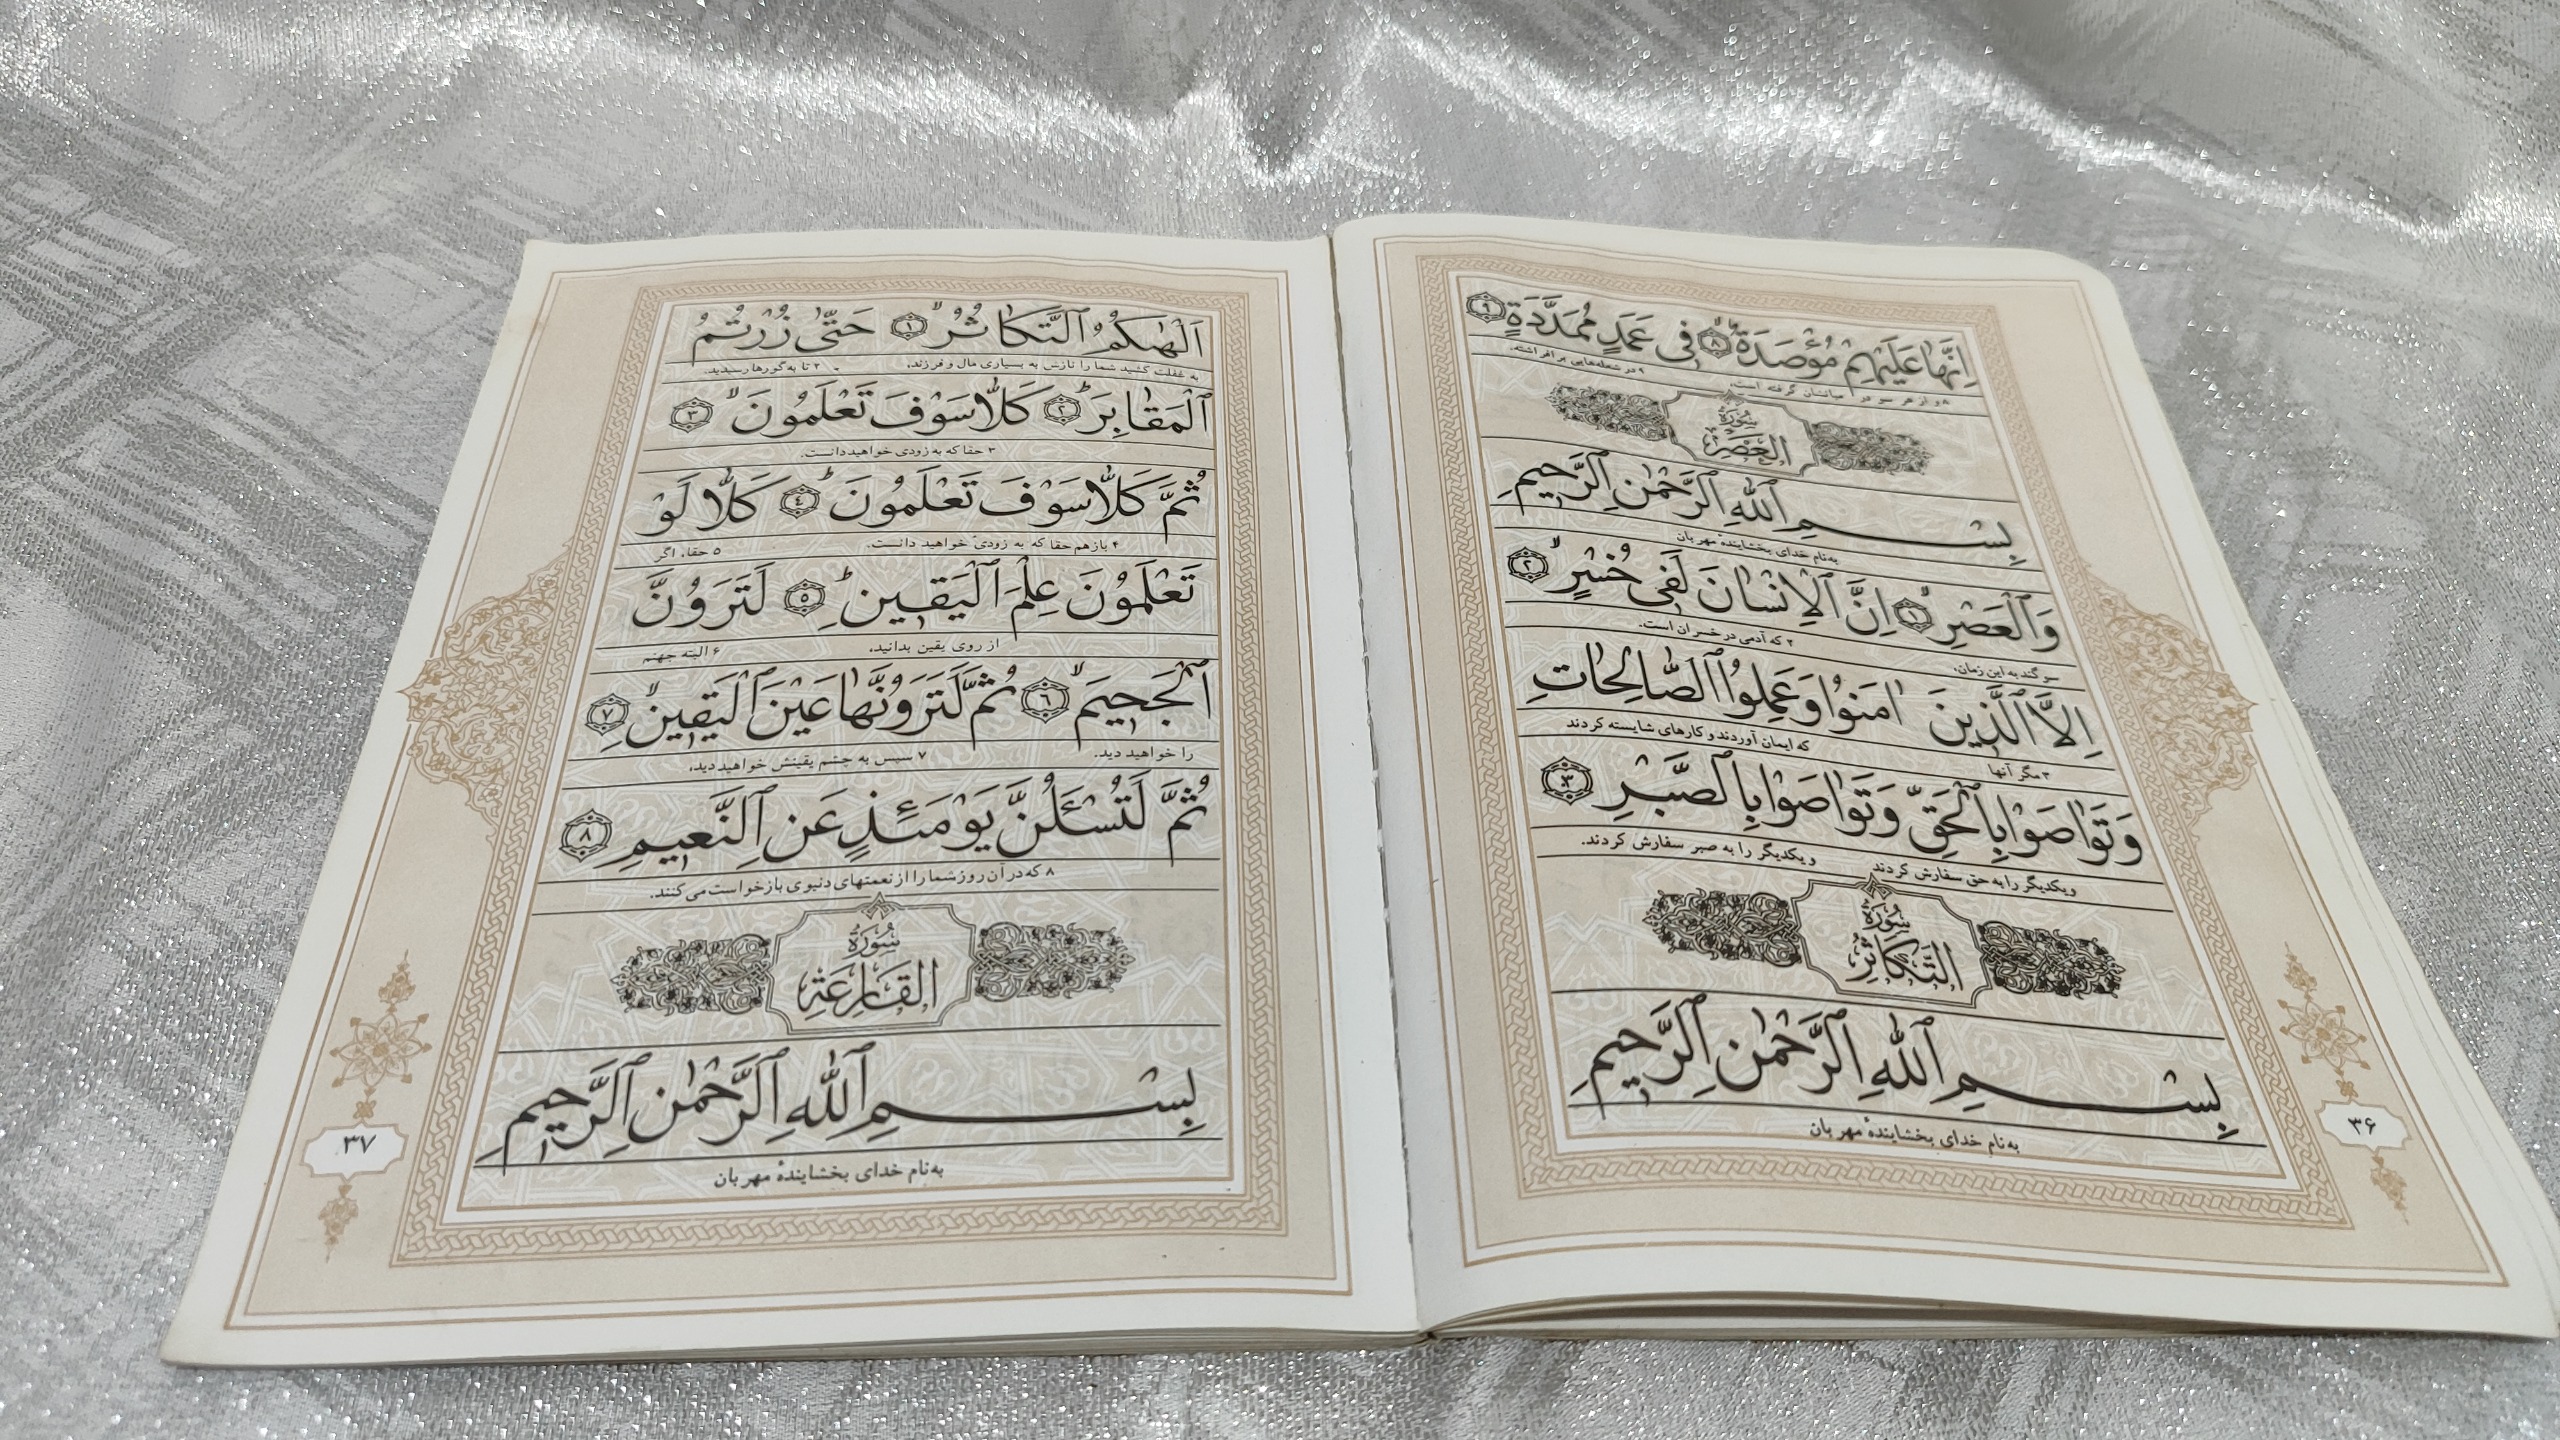 اِنَّهَا عَلَيْهِمْ مُؤْصَدَةٌ ﴿٨﴾ فِى عَمَدٍ مُمَدَّدَةٍ ﴿٩﴾
۸ و از هر سو در میانشان گرفته است. ۹ در شعله‌هایی برافراشته.
سُورَةُ
العَصْرِ
بِسْمِ ٱللّٰهِ ٱلرَّحْمٰنِ ٱلرَّحِيمِ
به‌نام خدای بخشایندهٔ مهربان
وَٱلْعَصْرِ ﴿١﴾ اِنَّ ٱلْاِنْسَانَ لَفِى خُسْرٍ ﴿٢﴾
سوگند به این زمان، ۲ که آدمی در خسران است.
اِلَّا ٱلَّذِينَ اٰمَنُوا وَعَمِلُوا ٱلصَّالِحَاتِ
۳ مگر آنها که ایمان آوردند و کارهای شایسته کردند
وَتَوَاصَوْا بِٱلْحَقِّ وَتَوَاصَوْا بِٱلصَّبْرِ ﴿٣﴾
و یکدیگر را به حق سفارش کردند و یکدیگر را به صبر سفارش کردند.
سُورَةُ
التَّكَاثُرِ
بِسْمِ ٱللّٰهِ ٱلرَّحْمٰنِ ٱلرَّحِيمِ
به‌نام خدای بخشایندهٔ مهربان
۳۶
اَلْهٰىكُمُ ٱلتَّكَاثُرُ ﴿١﴾ حَتّٰى زُرْتُمُ
به غفلت کشید شما را نازش به بسیاری مال و فرزند، ۲ تا به گورها رسیدید.
ٱلْمَقَابِرَ ﴿٢﴾ كَلَّا سَوْفَ تَعْلَمُونَ ﴿٣﴾
۳ حقا که به زودی خواهید دانست.
ثُمَّ كَلَّا سَوْفَ تَعْلَمُونَ ﴿٤﴾ كَلَّا لَوْ
۴ بازهم حقا که به زودی خواهید دانست. ۵ حقا، اگر
تَعْلَمُونَ عِلْمَ ٱلْيَقِينِ ﴿٥﴾ لَتَرَوُنَّ
از روی یقین بدانید، ۶ البته جهنم
ٱلْجَحِيمَ ﴿٦﴾ ثُمَّ لَتَرَوُنَّهَا عَيْنَ ٱلْيَقِينِ ﴿٧﴾
را خواهید دید. ۷ سپس به چشم یقینش خواهید دید،
ثُمَّ لَتُسْـَٔلُنَّ يَوْمَئِذٍ عَنِ ٱلنَّعِيمِ ﴿٨﴾
۸ که در آن روز شما را از نعمتهای دنیوی بازخواست می‌کنند.
سُورَةُ
القَارِعَةِ
بِسْمِ ٱللّٰهِ ٱلرَّحْمٰنِ ٱلرَّحِيمِ
به‌نام خدای بخشایندهٔ مهربان
۳۷